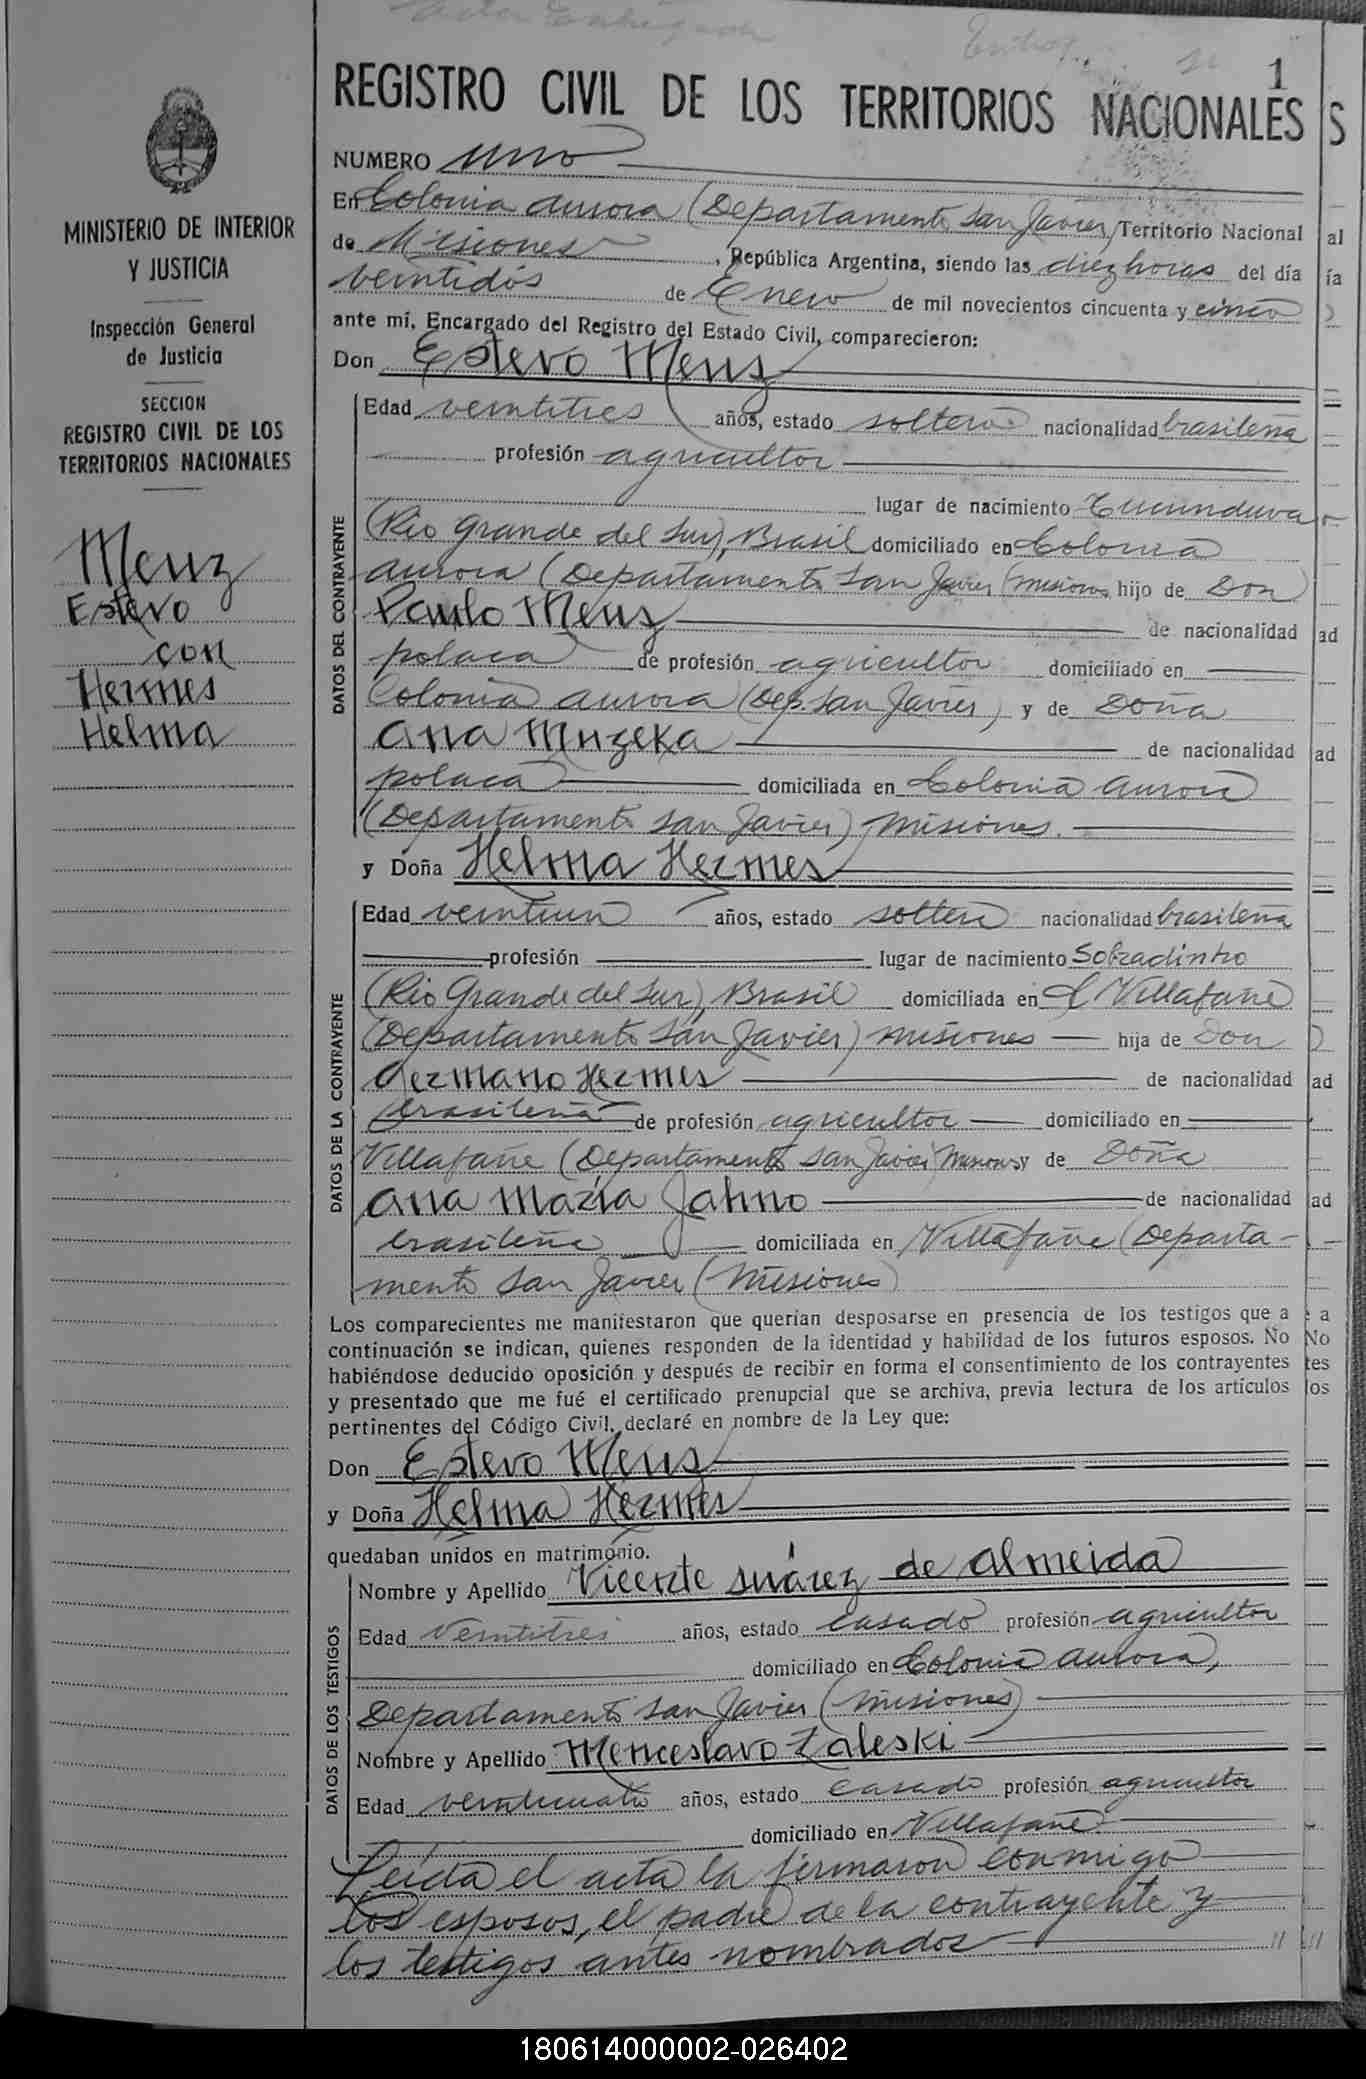 1
REGISTRO CIVIL DE LOS TERRITORIOS NACIONALES S
MINISTERIO DE INTERIOR
Y JUSTICIA
Inspección General
de Justicia
SECCION
REGISTRO CIVIL DE LOS
TERRITORIOS NACIONALES
Menz
Estevo
con
Hermes
Helma
NUMERO uno
En Colonia Aurora (Departamento San Javier) Territorio Nacional al
de Misiones, República Argentina, siendo las diez horas del día ía
veintidós de Enero de mil novecientos cincuenta y cinco
ante mí, Encargado del Registro del Estado Civil, comparecieron:
Don Estevo Menz
DATOS DEL CONTRAYENTE
Edad veintitres años, estado soltero nacionalidad brasileña
profesión agricultor
lugar de nacimiento Tucunduva
(Rio Grande del Sur), Brasil domiciliado en Colonia
Aurora (Departamento San Javier (Misiones hijo de Don
Paulo Menz de nacionalidad ad
polaca de profesión agricultor domiciliado en
Colonia Aurora (Dep. San Javier) y de Doña
Ana Muzeka de nacionalidad ad
polaca domiciliada en Colonia Aurora
(Departamento San Javier) Misiones.
y Doña Helma Hermes
DATOS DE LA CONTRAYENTE
Edad veintiun años, estado soltera nacionalidad brasileña
profesión lugar de nacimiento Sobradinho
(Rio Grande del Sur), Brasil domiciliada en Villafañe
(Departamento San Javier) Misiones hija de Don
Germano Hermes de nacionalidad ad
brasileña de profesión agricultor domiciliado en
Villafañe (Departamento San Javier) Misiones y de Doña
Ana María Jahno de nacionalidad ad
brasileña domiciliada en Villafañe (Departa-
mento San Javier (Misiones)
Los comparecientes me manifestaron que querían desposarse en presencia de los testigos que a a
continuación se indican, quienes responden de la identidad y habilidad de los futuros esposos. No No
habiéndose deducido oposición y después de recibir en forma el consentimiento de los contrayentes tes
y presentado que me fué el certificado prenupcial que se archiva, previa lectura de los artículos los
pertinentes del Código Civil, declaré en nombre de la Ley que:
Don Estevo Menz
y Doña Helma Hermes
quedaban unidos en matrimonio.
DATOS DE LOS TESTIGOS
Nombre y Apellido Vicente Suárez de Almeida
Edad Veintitres años, estado casado profesión agricultor
domiciliado en Colonia Aurora,
Departamento San Javier (Misiones)
Nombre y Apellido Menceslavo Zaleski
Edad veinticuatro años, estado casado profesión agricultor
domiciliado en Villafañe.
Leída el acta la firmaron conmigo
los esposos, el padre de la contrayente y
los testigos antes nombrados
180614000002-026402